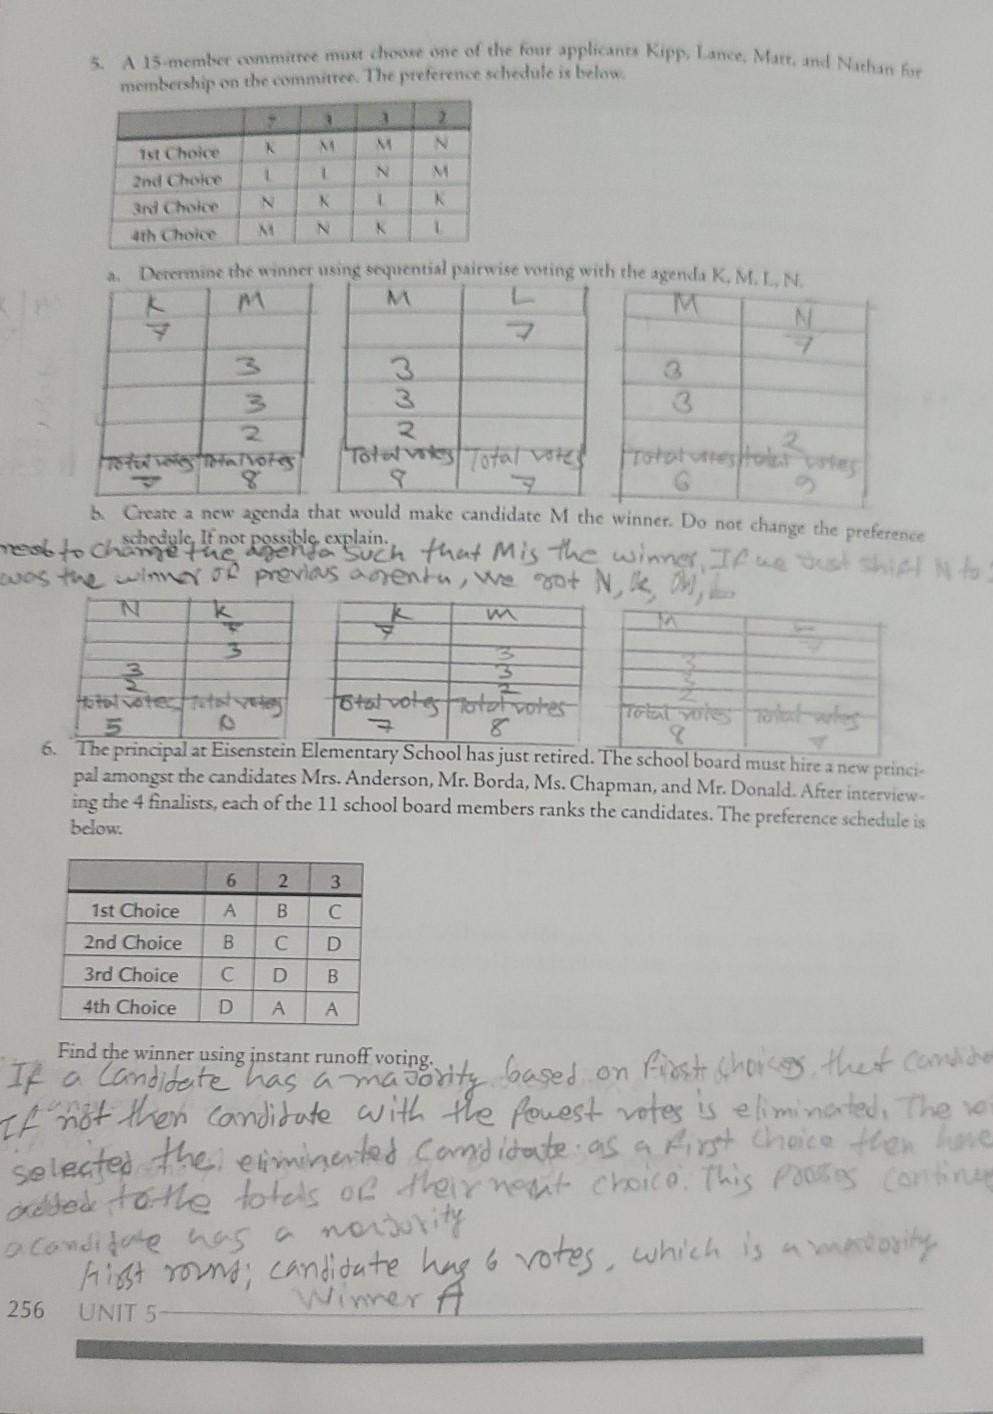 5. A 15-member committee must choose one of the four applicants Kipp, Lance, Matt, and Nathan for
membership on the committee. The preference schedule is below.
7 3 3 2
1st Choice K M M N
2nd Choice L L N M
3rd Choice N K L K
4th Choice M N K L
a. Determine the winner using sequential pairwise voting with the agenda K, M, L, N.
K M M L M N
7 7 7
3 3 3
3 3 3
2 2 2
Total votes Total votes Total votes Total votes Total votes Total votes
7 8 8 7 6 9
b. Create a new agenda that would make candidate M the winner. Do not change the preference
schedule. If not possible, explain.
to change the agenda such that M is the winner. If we just shift N to
was the winner of previous we got N, K, M, L
N K K M M L
7 7 7
3 3 3
3 3 3
2 2 2
Total votes Total votes Total votes Total votes Total votes Total votes
5 7 8 8 7
6. The principal at Eisenstein Elementary School has just retired. The school board must hire a new princi-
pal amongst the candidates Mrs. Anderson, Mr. Borda, Ms. Chapman, and Mr. Donald. After interview-
ing the 4 finalists, each of the 11 school board members ranks the candidates. The preference schedule is
below.
6 2 3
1st Choice A B C
2nd Choice B C D
3rd Choice C D B
4th Choice D A A
Find the winner using instant runoff voting.
If a candidate has a majority based on first choices, that
If not then candidate with the fewest votes is eliminated. The
selected the eliminated candidate as a first choice then have
added to the totals of their next choice. This continue
a candidate has a majority
First round; candidate has 6 votes, which is a majority
Winner A
256 UNIT 5